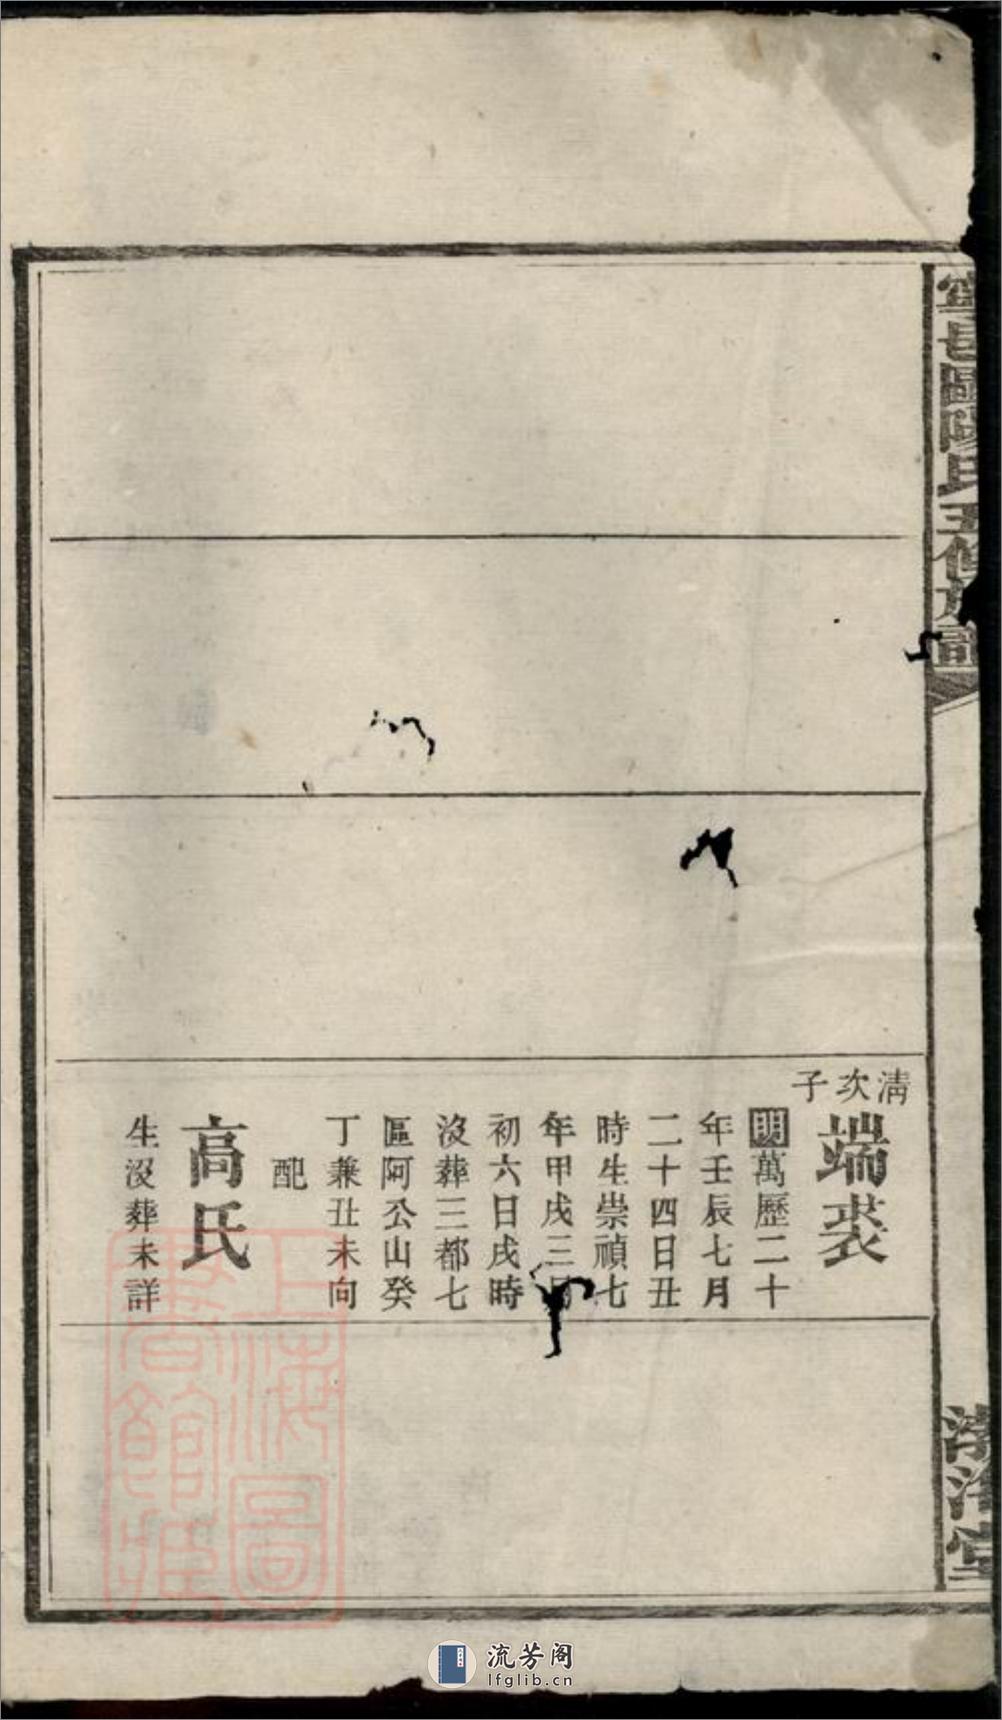 寧邑歐陽氏五修族譜
堂
清次子
端裘
明萬歷二十
年壬辰七月
二十四日丑
時生崇禎七
年甲戌三月
初六日戌時
沒葬三都七
區阿公山癸
丁兼丑未向
配
高氏
生沒葬未詳
上海圖
書館
流芳阁
lfglib.cn